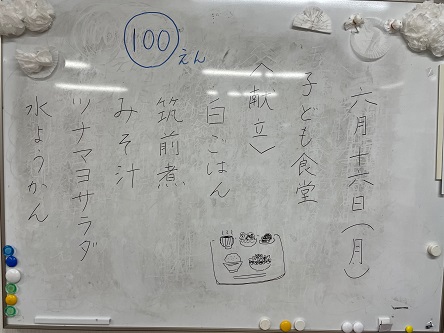 100えん
六月十六日(月)
子ども食堂
〈献立〉
白ごはん
筑前煮
みそ汁
ツナマヨサラダ
水ようかん